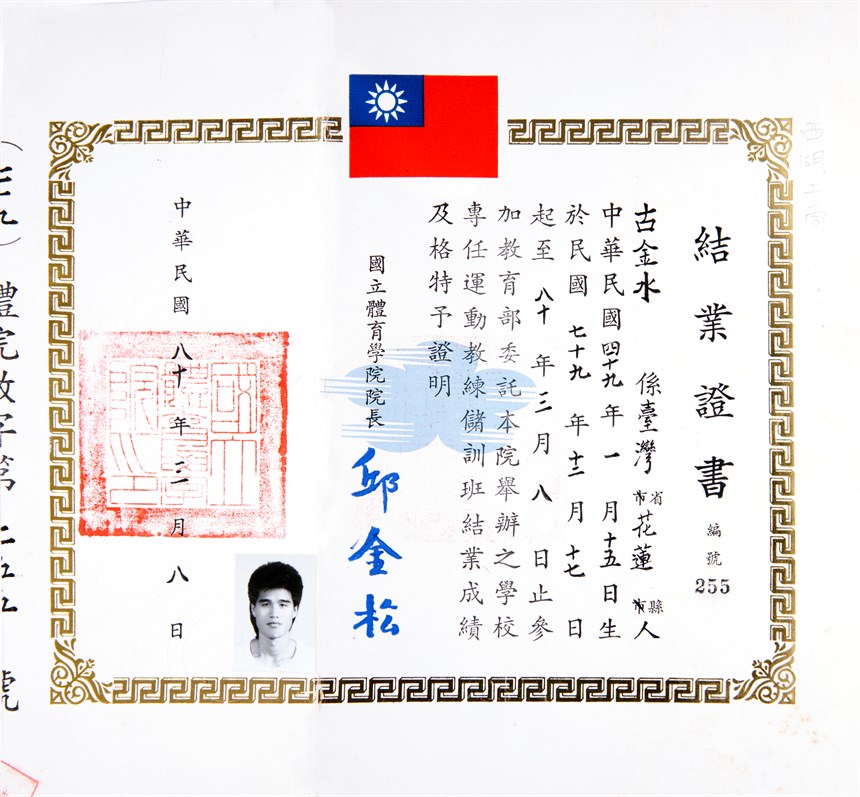 結業證書
編號
255
古金水 係臺灣省市花蓮縣市人
中華民國四十九年一月十五日生
於民國七十九年十二月十七日
起至八十年三月八日止參
加教育部委託本院舉辦之學校
專任運動教練儲訓班結業成績
及格特予證明
國立體育學院院長
邱金松
中華民國八十年三月八日
體院教字第二五五號
西湖工商